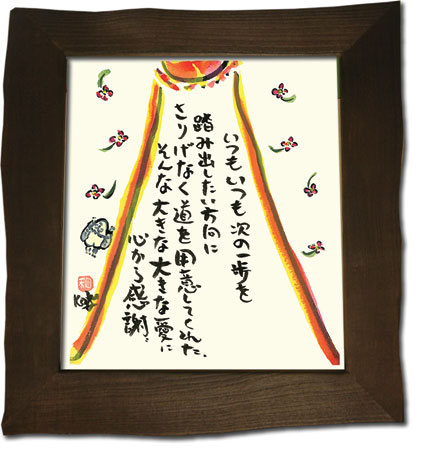 いつもいつも次の一歩を
踏み出したい方向に
さりげなく道を用意してくれた、
そんな大きな大きな愛に
心から感謝。